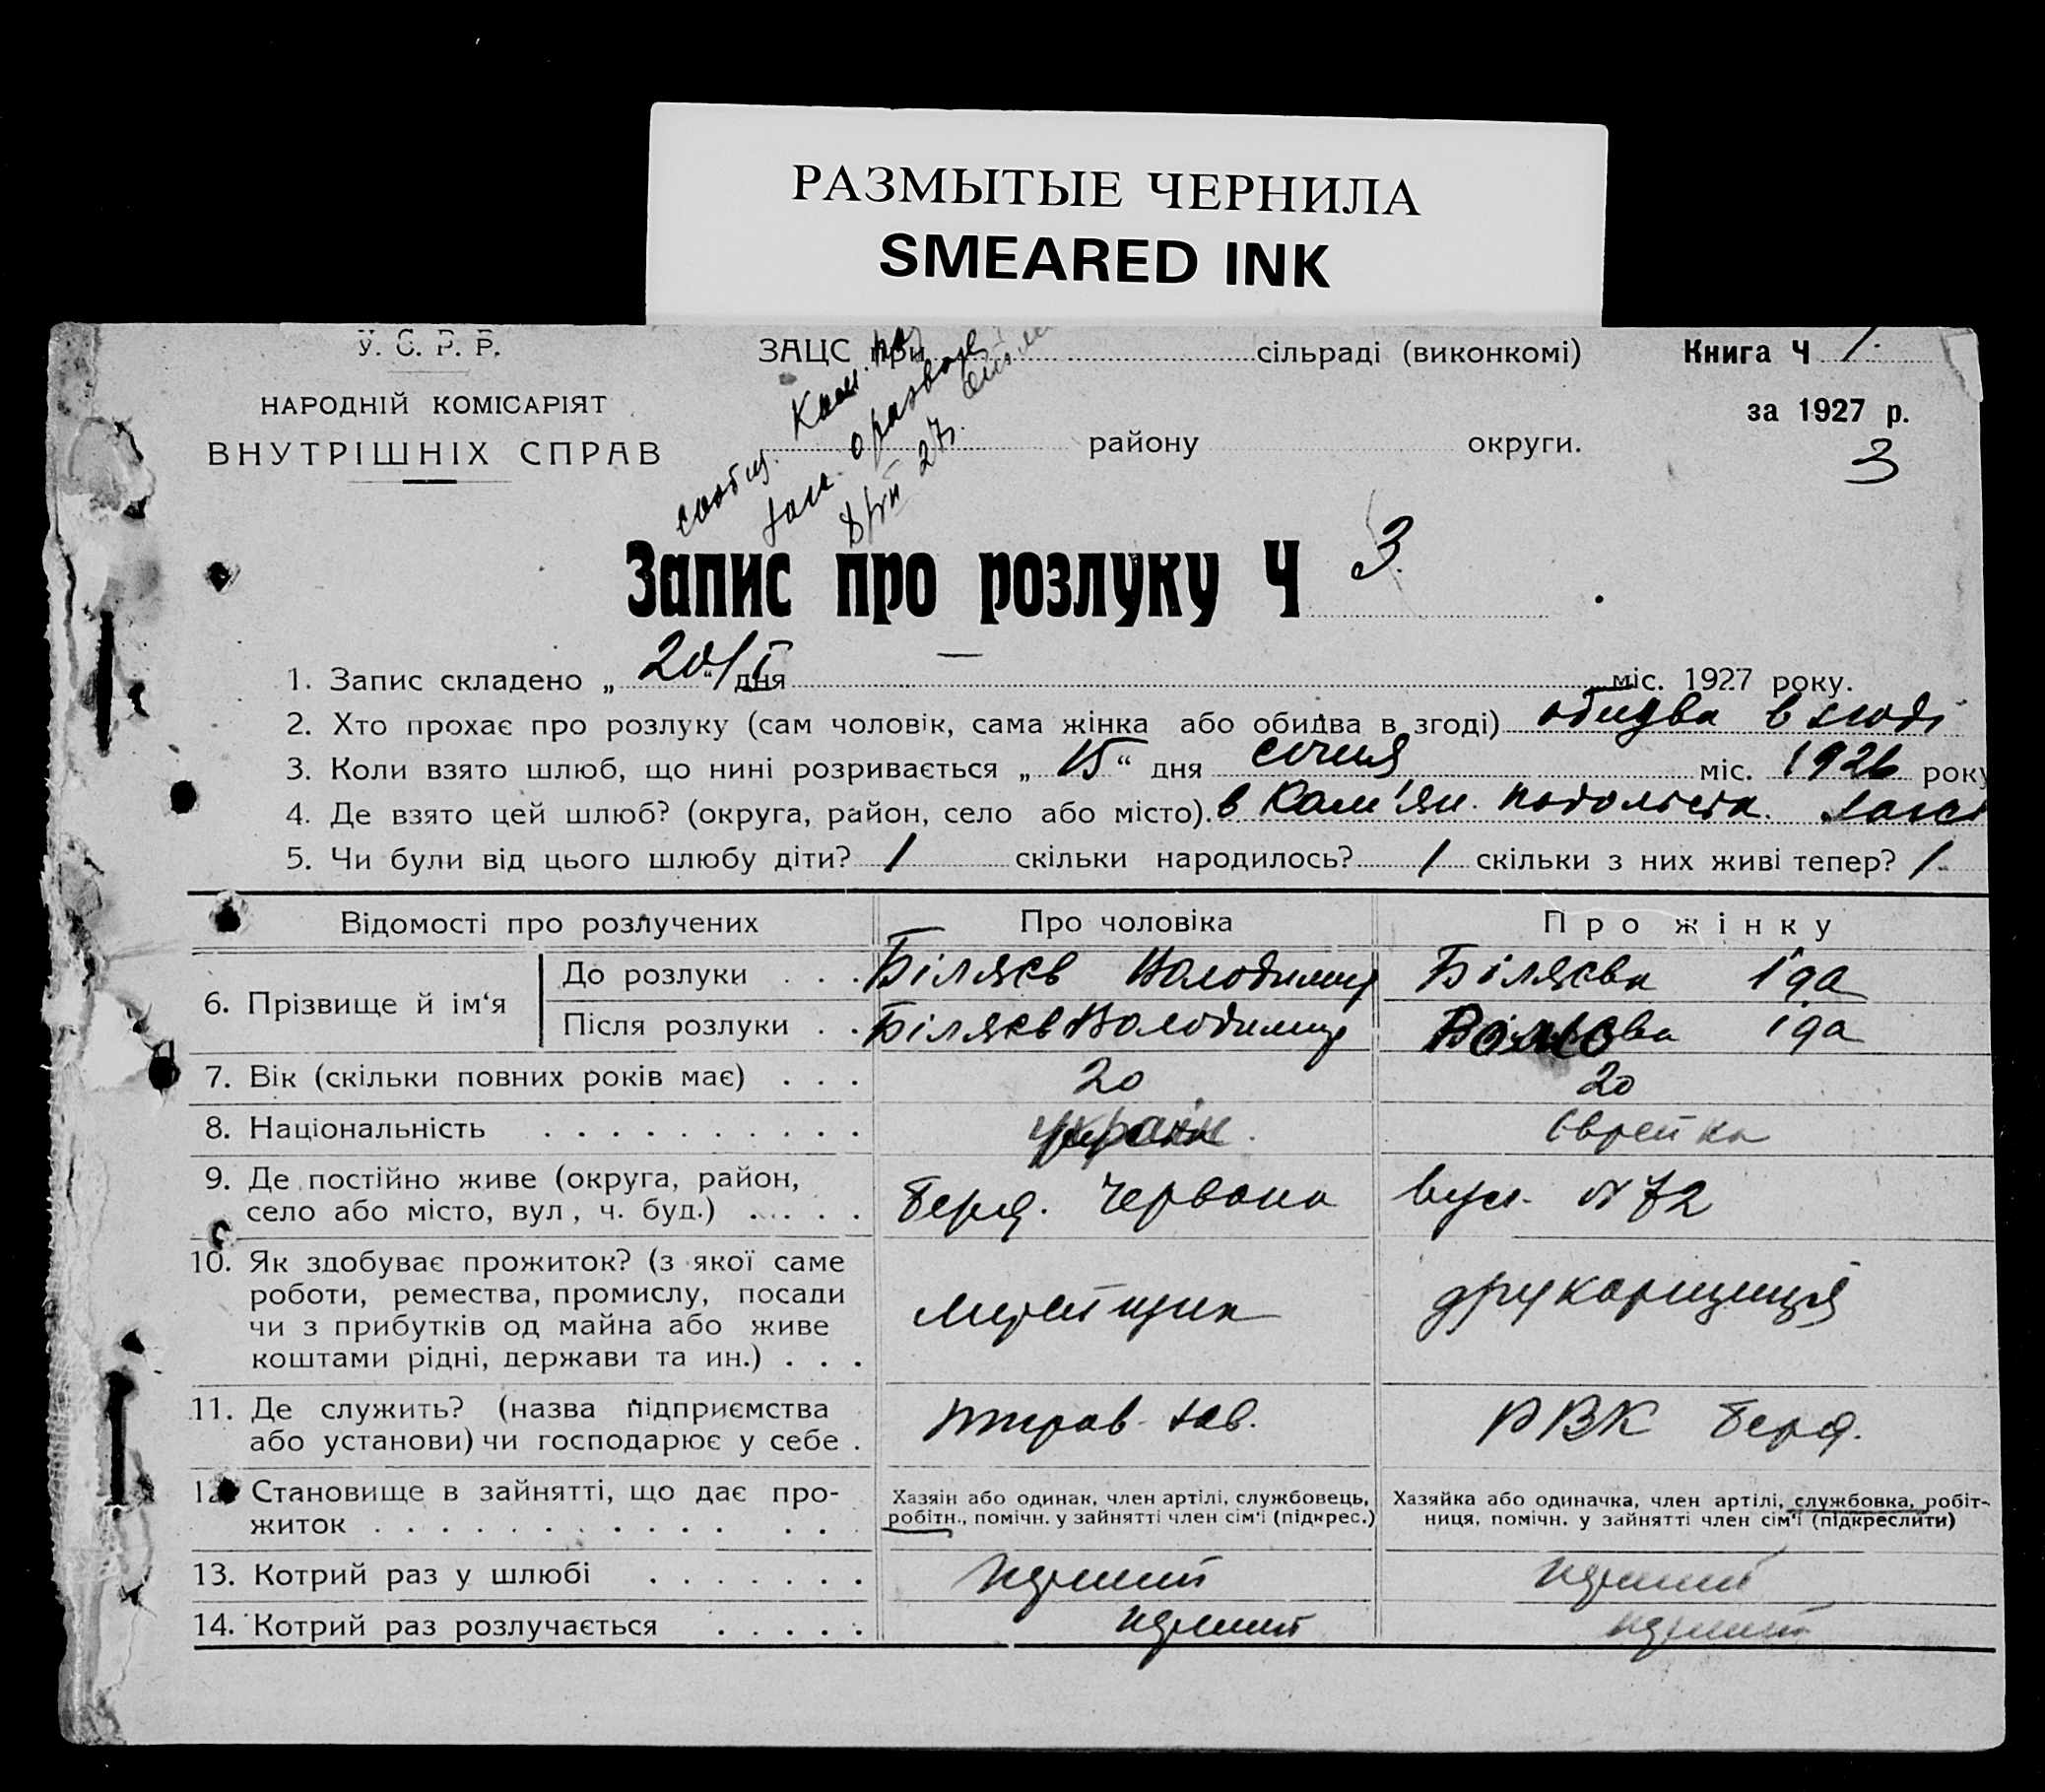 РАЗМЫТЫЕ ЧЕРНИЛА
SMEARED INK
У. С. Р. Р.
НАРОДНІЙ КОМІСАРІЯТ
ВНУТРІШНІХ СПРАВ
ЗАЦС при сільраді (виконкомі)
району округи.
Книга Ч 1.
за 1927 р.
3
Запис про розлуку Ч 3.
1. Запис складено „ 20/I “ дня міс. 1927 року.
2. Хто прохає про розлуку (сам чоловік, сама жінка або обидва в згоді) обидва в згоді
3. Коли взято шлюб, що нині розривається „ 15 “ дня січня міс. 1926 року
4. Де взято цей шлюб? (округа, район, село або місто). в Кам'ян.
5. Чи були від цього шлюбу діти? 1 скільки народилось? 1 скільки з них живі тепер? 1.
Відомості про розлучених Про чоловіка Про жінку
6. Прізвище й ім‘я
До розлуки . . . Біляєв Володимир Біляєва Іда
Після розлуки . . Біляєв Володимир Іда
7. Вік (скільки повних років має) . . . 20 20
8. Національність . . . . . . . . . . україн. Єврейка
9. Де постійно живе (округа, район,
село або місто, вул, ч. буд.) . . . . Берд. Червона вул. №72
10. Як здобуває прожиток? (з якої саме
роботи, ремества, промислу, посади
чи з прибутків од майна або живе
коштами рідні, держави та ин.) . . . друкарщиця
11. Де служить? (назва підприємства
або установи) чи господарює у себе . зав. РВК Берд.
12. Становище в зайнятті, що дає про-
житок . . . . . . . . . . . . . .
Хазяїн або одинак, член артілі, службовець,
робітн., помічн. у зайнятті член сім'ї (підкрес.)
Хазяйка або одиначка, член артілі, службовка, робіт-
ниця, помічн. у зайнятті член сім'ї (підкреслити)
13. Котрий раз у шлюбі . . . . . . .
14. Котрий раз розлучається . . . . .